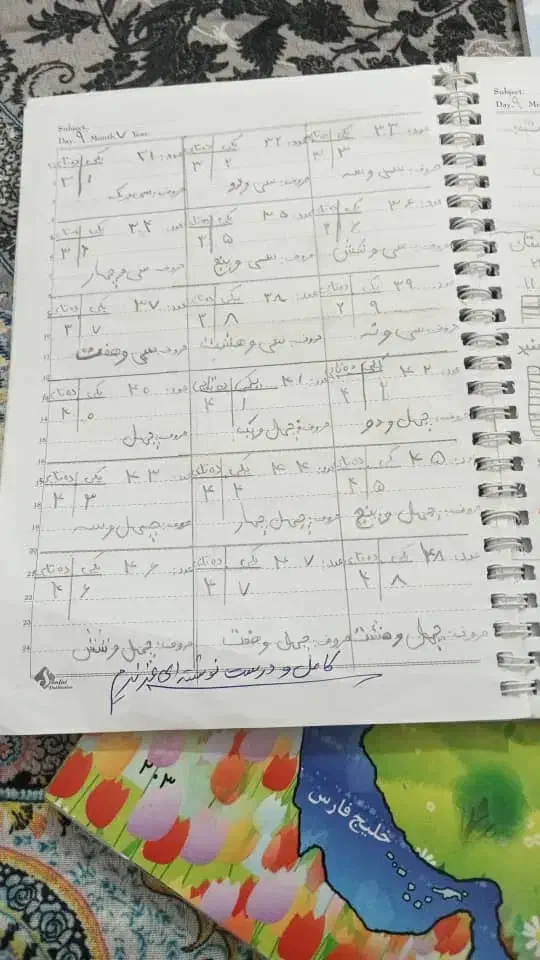 Subject:
Day. ۹ Month. ۷ Year.
عدد: ۳۳ عدد: ۳۲ عدد: ۳۱
یکی ده‌تایی یکی ده‌تایی یکی ده‌تایی
۳ ۳ ۲ ۳ ۱ ۳
حروف: سی و سه حروف: سی و دو حروف: سی و یک
عدد: ۳۶ عدد: ۳۵ عدد: ۳۴
یکی ده‌تایی یکی ده‌تایی یکی ده‌تایی
۶ ۳ ۵ ۳ ۴ ۳
حروف: سی و شش حروف: سی و پنج حروف: سی و چهار
عدد: ۳۹ عدد: ۳۸ عدد: ۳۷
یکی ده‌تایی یکی ده‌تایی یکی ده‌تایی
۹ ۳ ۸ ۳ ۷ ۳
حروف: سی و نه حروف: سی و هشت حروف: سی و هفت
عدد: ۴۲ عدد: ۴۱ عدد: ۴۰
یکی ده‌تایی یکی ده‌تایی یکی ده‌تایی
۲ ۴ ۱ ۴ ۰ ۴
حروف: چهل و دو حروف: چهل و یک حروف: چهل
عدد: ۴۵ عدد: ۴۴ عدد: ۴۳
یکی ده‌تایی یکی ده‌تایی یکی ده‌تایی
۵ ۴ ۴ ۴ ۳ ۴
حروف: چهل و پنج حروف: چهل چهار حروف: چهل و سه
عدد: ۴۸ عدد: ۴۷ عدد: ۴۶
یکی ده‌تایی یکی ده‌تایی یکی ده‌تایی
۸ ۴ ۷ ۴ ۶ ۴
حروف: چهل و هشت حروف: چهل و هفت حروف: چهل و شش
کامل و درست نوشته‌ای فرزندم
Subject:
Day. ۹
۲۰۳
خلیج فارس